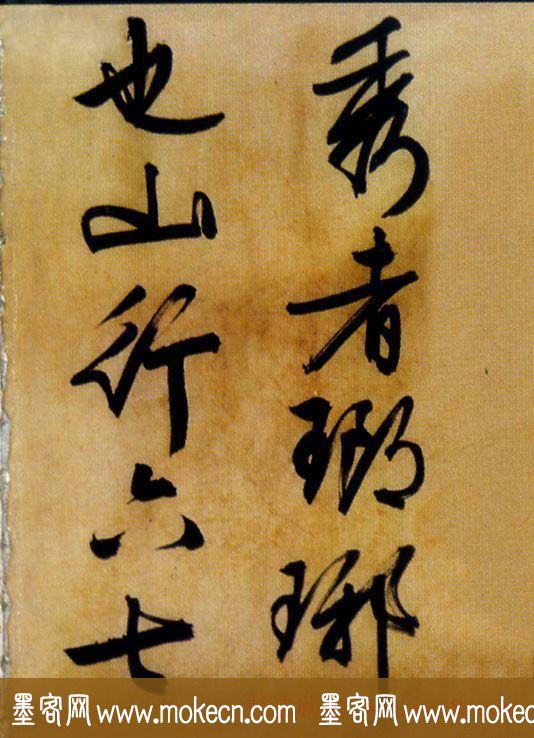 秀者琅琊
也山行六七
墨客网 www.mokecn.com 墨客网 www.mokecn.com